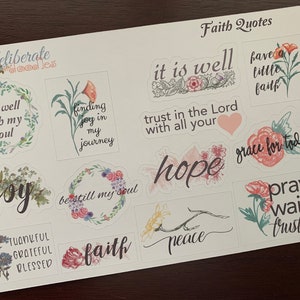 Faith Quotes
deliberate
doodles
it is well
have a
little
faith
well
my
soul
finding
joy in
my
journey
trust in the Lord
with all your
grace for today
joy
be still my soul
hope
pray
wait
trust
THANKFUL
GRATEFUL
BLESSED
faith
peace